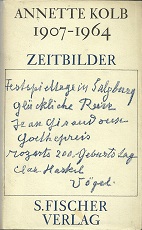 ANNETTE KOLB
1907-1964
ZEITBILDER
Festspieltage in Salzburg
glückliche Reise
Jean Giraudoux
Goethepreis
Mozarts 200. Geburtstag
Clara Haskil
Vögel.
S. FISCHER
VERLAG